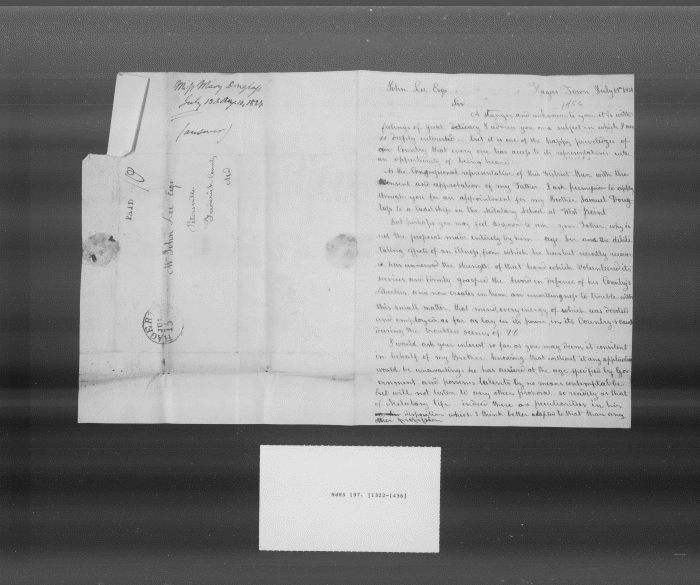 Miss Mary Douglass
July 13 & Augt 10, 1824
(answered)
PAID 10
Mr John Lee Esqr
Petersville
Frederick County
Md
HAGERS
JUL
15
John Lee Esqr Hagers Town July 13th 1824
Sir
A stranger and unknown to you, it is with
feelings of great delicacy I address you on a subject in which I am
so deeply interested but it is one of the happy priveleges of
our Country that every one has access to its representatives with
an opportunity of being heard.
As the Congressional representative of this District then with the
consent and approbation of my Father I ask permission to apply
through you for an appointment for my Brother, Samuel Doug-
lass to a cadetship in the Military School at West point
But perhaps you may feel disposed to ask, your Father why is
not the proposal made entirely by him - age, Sir and the debili-
tating effects of an illness from which he has but recently recover
ed has unnerved the strength of that hand which Volunteered its
services and firmly grasped the sword in defence of his Country's
Liberties, and now creates in him an unwillingness to trouble with
this small matter that mind, every energy of which was devoted
and employed as far as lay in its power in its Country's cause
during the troubled scenes of 76
I would ask your interest so far as you may deem it consistent
in behalf of my Brother, knowing that without it any application
would be unavailing. he has arrived at the age specified by Gov
ernment and possesses talents by no means contemptable
but will not listen to any other proposal so readily as that
of Military life - indeed there are peculiarities in his
disposition which I think better adapted to that than any
other profession
MdHR 197. [1322-1456]